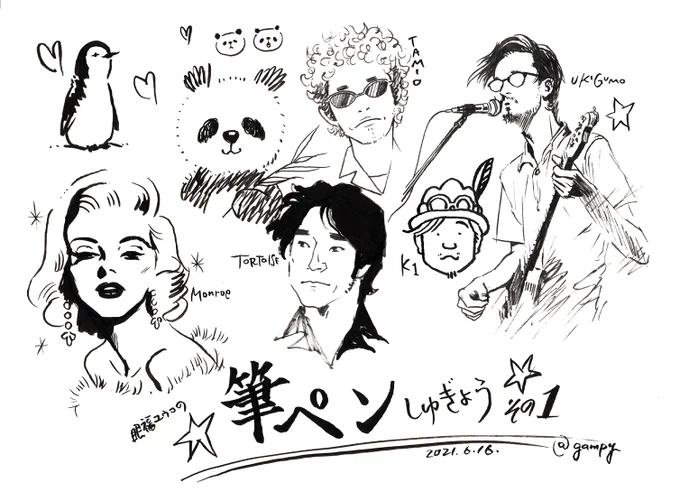 TAMIO
UKiGUMO
TORTOISE
K1
Monroe
眼福ユウコの
筆ペン しゅぎょう その1
2021.6.16.
@gampy